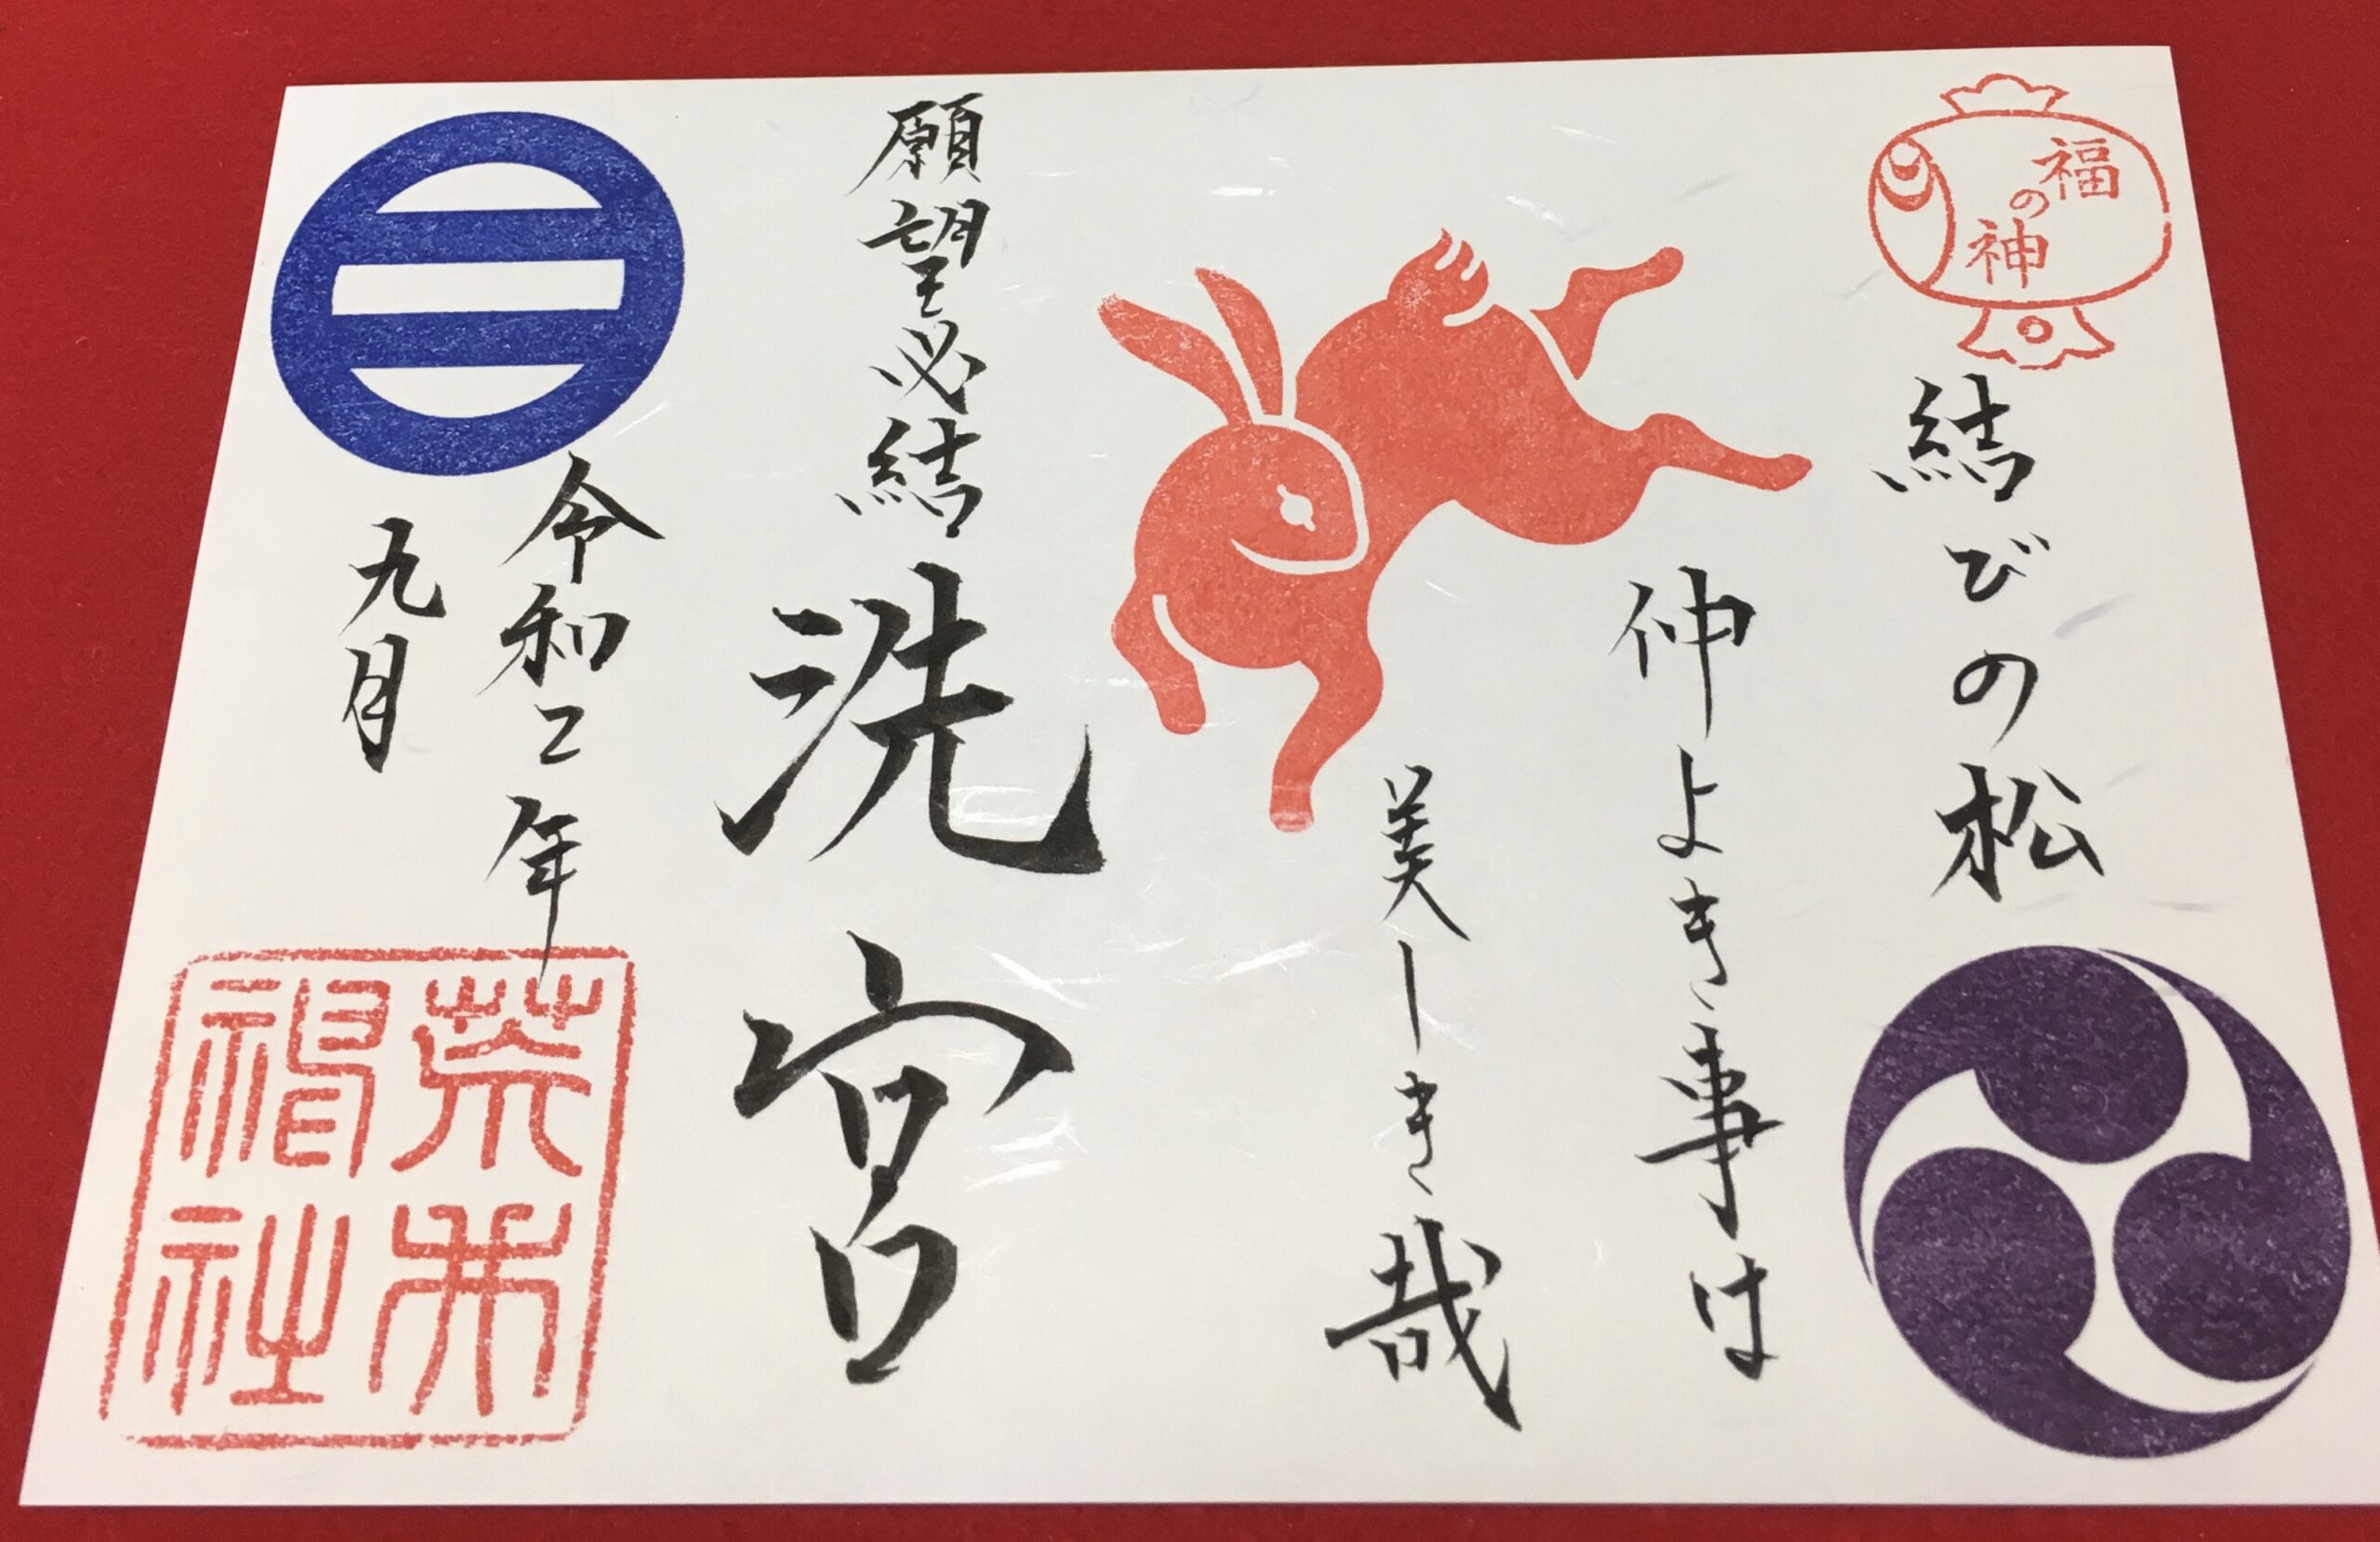 福の神
結びの松
仲よき事は
美しき哉
願望必結
洗宮
令和二年
九月
荒井
神社